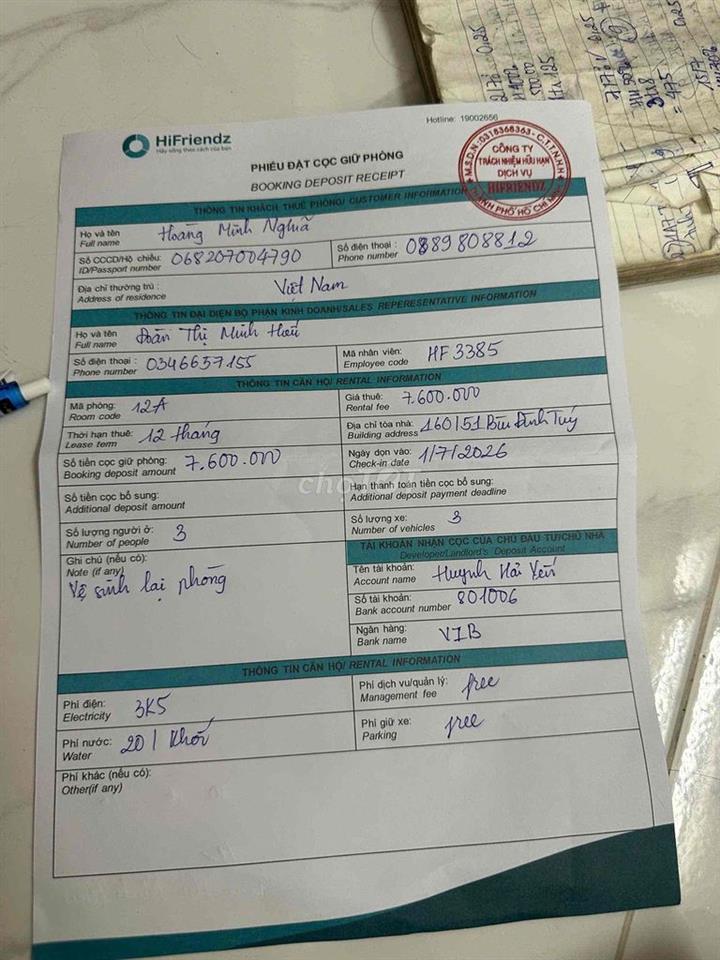 Hotline: 19002656
HiFriendz
Hãy sống theo cách của bạn
PHIẾU ĐẶT CỌC GIỮ PHÒNG
BOOKING DEPOSIT RECEIPT
M.S.D.N:0318368363-C.T.T.N.H.H
CÔNG TY
TRÁCH NHIỆM HỮU HẠN
DỊCH VỤ
HIFRIENDZ
THÀNH PHỐ HỒ CHÍ MINH
THÔNG TIN KHÁCH THUÊ PHÒNG/ CUSTOMER INFORMATION
Họ và tên
Full name
Hoàng Minh Nghĩa
Số CCCD/Hộ chiếu:
ID/Passport number
068207004790
Số điện thoại:
Phone number
0889808812
Địa chỉ thường trú :
Address of residence
Việt Nam
THÔNG TIN ĐẠI DIỆN BỘ PHẬN KINH DOANH/SALES REPERESENTATIVE INFORMATION
Họ và tên
Full name
Đoàn Thị Minh Hiếu
Số điện thoại :
Phone number
0346657155
Mã nhân viên:
Employee code
HF 3385
THÔNG TIN CĂN HỘ/ RENTAL INFORMATION
Mã phòng:
Room code
12A
Giá thuê:
Rental fee
7.600.000
Thời hạn thuê:
Lease term
12 tháng
Địa chỉ tòa nhà:
Building address
160/51 Bùi Đình Tuý
Số tiền cọc giữ phòng:
Booking deposit amount
7.600.000
Ngày dọn vào:
Check-in date
1/7/2026
Số tiền cọc bổ sung:
Additional deposit amount
Hạn thanh toán tiền cọc bổ sung:
Additional deposit payment deadline
Số lượng người ở:
Number of people
3
Số lượng xe:
Number of vehicles
3
Ghi chú (nếu có):
Note (if any)
Vệ sinh lại phòng
TÀI KHOẢN NHẬN CỌC CỦA CHỦ ĐẦU TƯ/CHỦ NHÀ
Developer/Landlord's Deposit Account
Tên tài khoản:
Account name
Huỳnh Hải Yến
Số tài khoản:
Bank account number
801006
Ngân hàng:
Bank name
VIB
THÔNG TIN CĂN HỘ/ RENTAL INFORMATION
Phí điện:
Electricity
3K5
Phí dịch vụ/quản lý:
Management fee
free
Phí nước:
Water
20 / Khối
Phí giữ xe:
Parking
free
Phí khác (nếu có):
Other(if any)